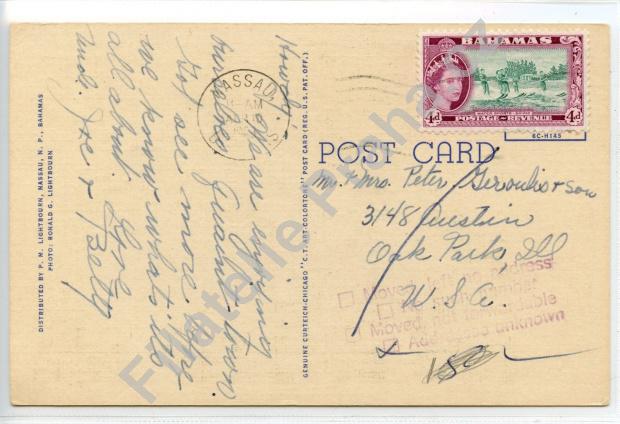 Howdy,
We are enjoying
ourselves. Quaint town
to see more. Hope
we know what it's
all about. Love
Joe & Betty
DISTRIBUTED BY P. M. LIGHTBOURN, NASSAU, N. P., BAHAMAS
PHOTO: RONALD G. LIGHTBOURN
GENUINE CURTEICH-CHICAGO "C.T. ART-COLORTONE" POST CARD (REG. U.S. PAT. OFF.)
NASSAU
AM
BAHAMAS
4d 4d
POSTAGE - REVENUE
6C-H145
POST CARD
Mr. & Mrs. Peter & Son
3148 Austin
Oak Park, Ill
U.S.A.
Moved, left no address
No such number
Moved, not forwardable
Addressee unknown
Filatelie Praha